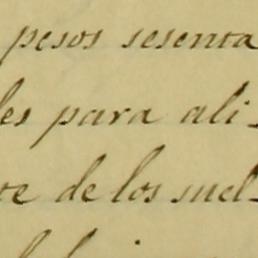 pesos sesenta
les para ali-
te de los suel-